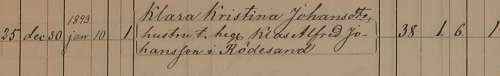 1893
25 dec 30 jan. 10 1 Klara Kristina Johansdtr,
hustru t. heg. Klas Alfred Jo-
hansson i Rödesand 38 1. 6. 1